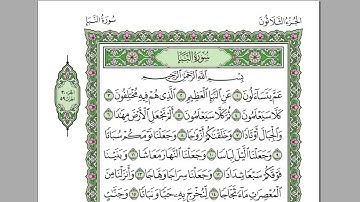 سُورَةُ النَّبَإِ
الجُزْءُ الثَّلَاثُونَ
سُورَةُ النَّبَإِ
بِسْمِ اللَّهِ الرَّحْمَٰنِ الرَّحِيمِ
عَمَّ يَتَسَاءَلُونَ ١ عَنِ النَّبَإِ الْعَظِيمِ ٢ الَّذِي هُمْ فِيهِ مُخْتَلِفُونَ ٣
كَلَّا سَيَعْلَمُونَ ٤ ثُمَّ كَلَّا سَيَعْلَمُونَ ٥ أَلَمْ نَجْعَلِ الْأَرْضَ مِهَادًا ٦
وَالْجِبَالَ أَوْتَادًا ٧ وَخَلَقْنَاكُمْ أَزْوَاجًا ٨ وَجَعَلْنَا نَوْمَكُمْ سُبَاتًا
٩ وَجَعَلْنَا اللَّيْلَ لِبَاسًا ١٠ وَجَعَلْنَا النَّهَارَ مَعَاشًا ١١ وَبَنَيْنَا
فَوْقَكُمْ سَبْعًا شِدَادًا ١٢ وَجَعَلْنَا سِرَاجًا وَهَّاجًا ١٣ وَأَنْزَلْنَا مِنَ
الْمُعْصِرَاتِ مَاءً ثَجَّاجًا ١٤ لِنُخْرِجَ بِهِ حَبًّا وَنَبَاتًا ١٥ وَجَنَّاتٍ